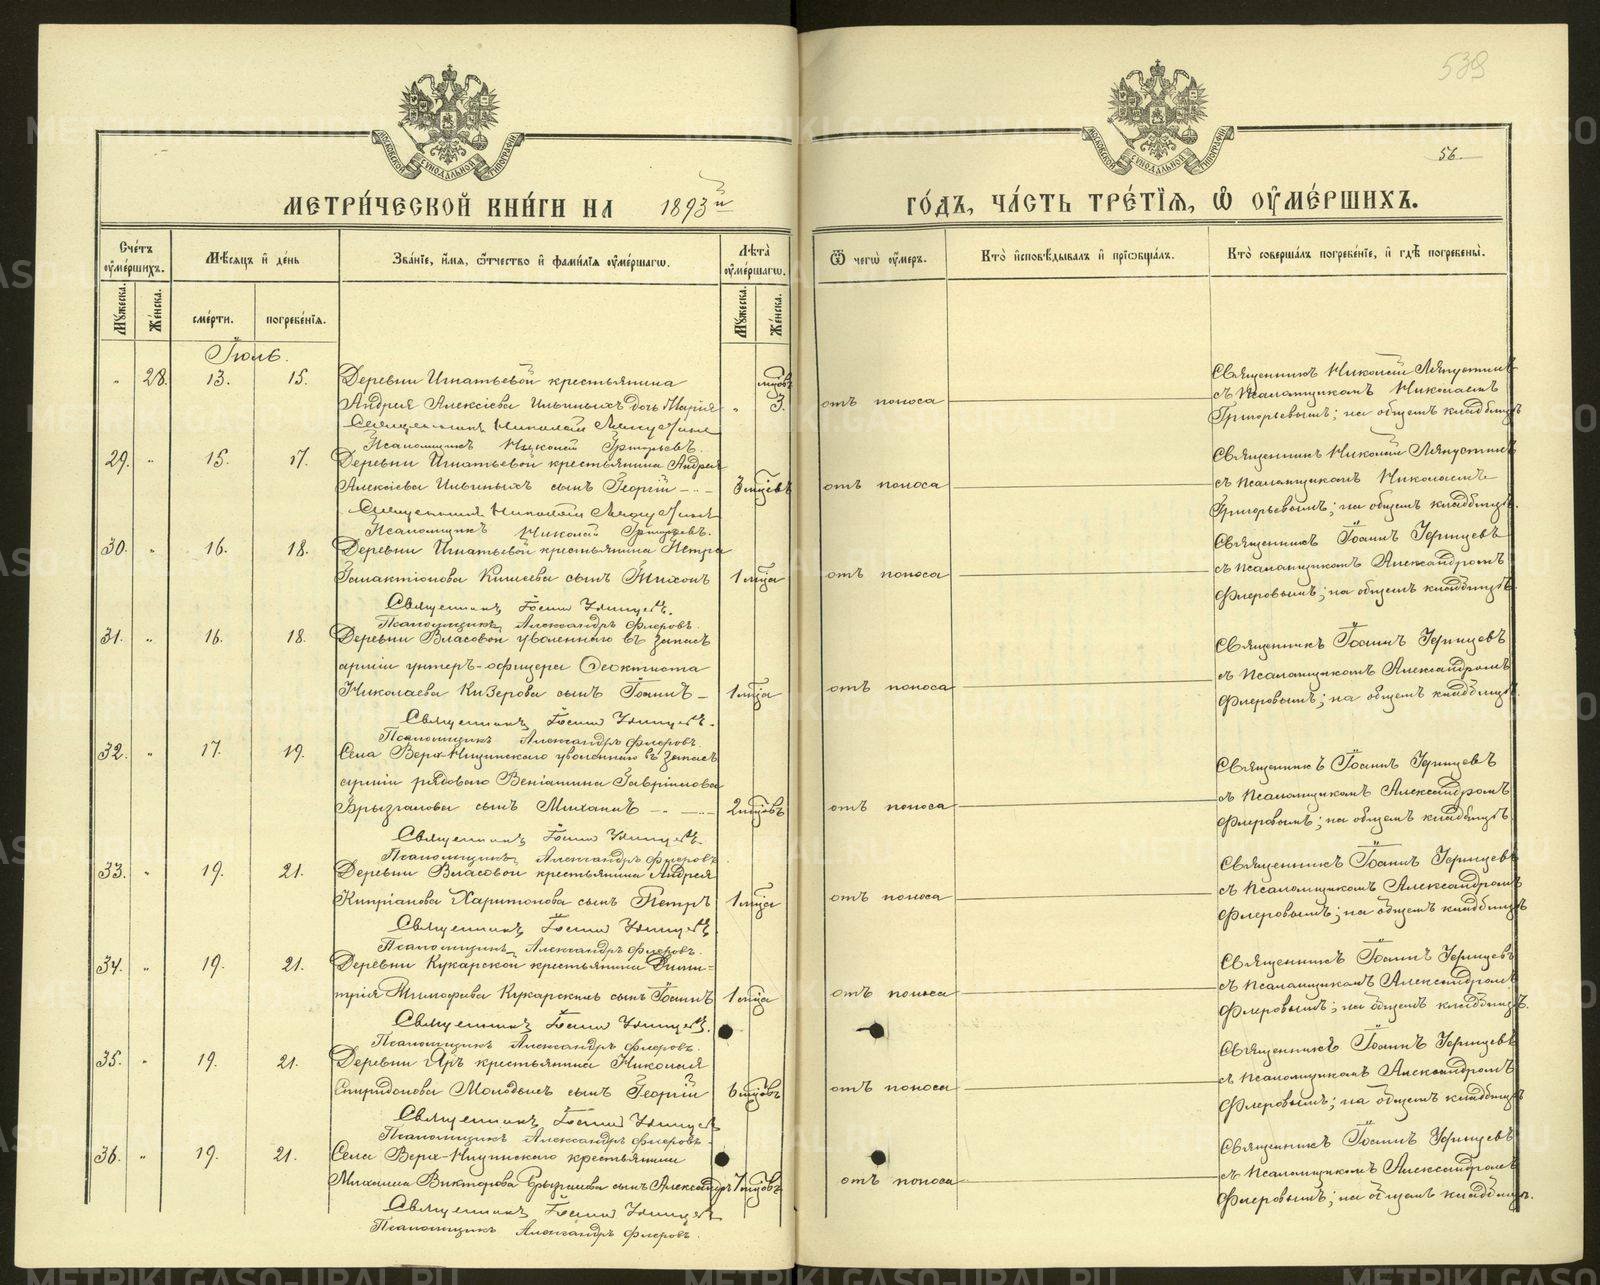 539
56.
МОСКОВСКОЙ СѴНОДАЛЬНОЙ ТИПОГРАФІИ
МОСКОВСКОЙ СѴНОДАЛЬНОЙ ТИПОГРАФІИ
МЕТРИ́ЧЕСКОЙ КНИ́ГИ НА 1893й ГО́ДЪ, ЧА́СТЬ ТРЕ́ТІЯ, Ѡ҆ ОУ҆МЕ́РШИХЪ.
Счетъ оумершихъ.
Мужеска.
Женска.
Мѣсяцъ и день
смерти.
погребенія.
Званіе, имя, отчество и фамилія оумершагѡ.
Лѣта оумершагѡ.
Мужеска.
Женска.
Ѿ чегѡ оумеръ.
Кто исповѣдывалъ и пріобщалъ.
Кто совершалъ погребеніе, и гдѣ погребены.
Іюль.
" 28. 13. 15. Деревни Игнатьевой крестьянина мцовъ Священникъ Николай Ляпустинъ
Андрея Алексіева Ильиныхъ дочь Марія " 3. отъ поноса съ Псаломщикомъ Николаемъ
Священникъ Николай Ляпустинъ Григорьевымъ; на общемъ кладбищѣ
Псаломщикъ Николай Григорьевъ.
29. " 15. 17. Деревни Игнатьевой крестьянина Андрея Священникъ Николай Ляпустинъ
Алексіева Ильиныхъ сынъ Георгій 3 мцевъ отъ поноса съ Псаломщикомъ Николаемъ
Священникъ Николай Ляпустинъ Григорьевымъ; на общемъ кладбищѣ.
Псаломщикъ Николай Григорьевъ.
30. " 16. 18. Деревни Игнатьевой крестьянина Петра Священникъ Іоаннъ
Галактіонова сынъ Тихонъ 1 мца отъ поноса съ Псаломщикомъ Александромъ
Священникъ Іоаннъ Флеровымъ; на общемъ кладбищѣ
Псаломщикъ Александръ Флеровъ.
31. " 16. 18. Деревни Власовой уволеннаго въ запасъ Священникъ Іоаннъ
арміи унтеръ-офицера Феоктиста съ Псаломщикомъ Александромъ
Николаева Кизерова сынъ Іоаннъ 1 мца отъ поноса Флеровымъ; на общемъ кладбищѣ.
Священникъ Іоаннъ
Псаломщикъ Александръ Флеровъ
32. " 17. 19. Села Верх-Ницинскаго уволеннаго въ запасъ Священникъ Іоаннъ
арміи рядоваго Веніамина Гавріилова съ Псаломщикомъ Александромъ
Брызгалова сынъ Михаилъ 2 мцовъ отъ поноса Флеровымъ; на общемъ кладбищѣ.
Священникъ Іоаннъ
Псаломщикъ Александръ Флеровъ
33. " 19. 21. Деревни Власовой крестьянина Андрея Священникъ Іоаннъ
Кипріанова Харитонова сынъ Петръ 1 мца отъ поноса съ Псаломщикомъ Александромъ
Священникъ Іоаннъ Флеровымъ; на общемъ кладбищѣ
Псаломщикъ Александръ Флеровъ.
34. " 19. 21. Деревни Кукарской крестьянина Дими- Священникъ Іоаннъ
трія Тимофѣева Кукарскихъ сынъ Іоаннъ 1 мца отъ поноса съ Псаломщикомъ Александромъ
Священникъ Іоаннъ Флеровымъ; на общемъ кладбищѣ.
Псаломщикъ Александръ Флеровъ.
35. " 19. 21. Деревни Яръ крестьянина Николая Священникъ Іоаннъ
Спиридонова Молодыхъ сынъ Георгій 6 мцовъ отъ поноса съ Псаломщикомъ Александромъ
Священникъ Іоаннъ Флеровымъ; на общемъ кладбищѣ
Псаломщикъ Александръ Флеровъ
36. " 19. 21. Села Верх-Ницинскаго крестьянина Священникъ Іоаннъ
Михаила Викторова сынъ Александръ 7 мцовъ отъ поноса съ Псаломщикомъ Александромъ
Священникъ Іоаннъ Флеровымъ; на общемъ кладбищѣ.
Псаломщикъ Александръ Флеровъ.
METRIKI.GASO-URAL.RU